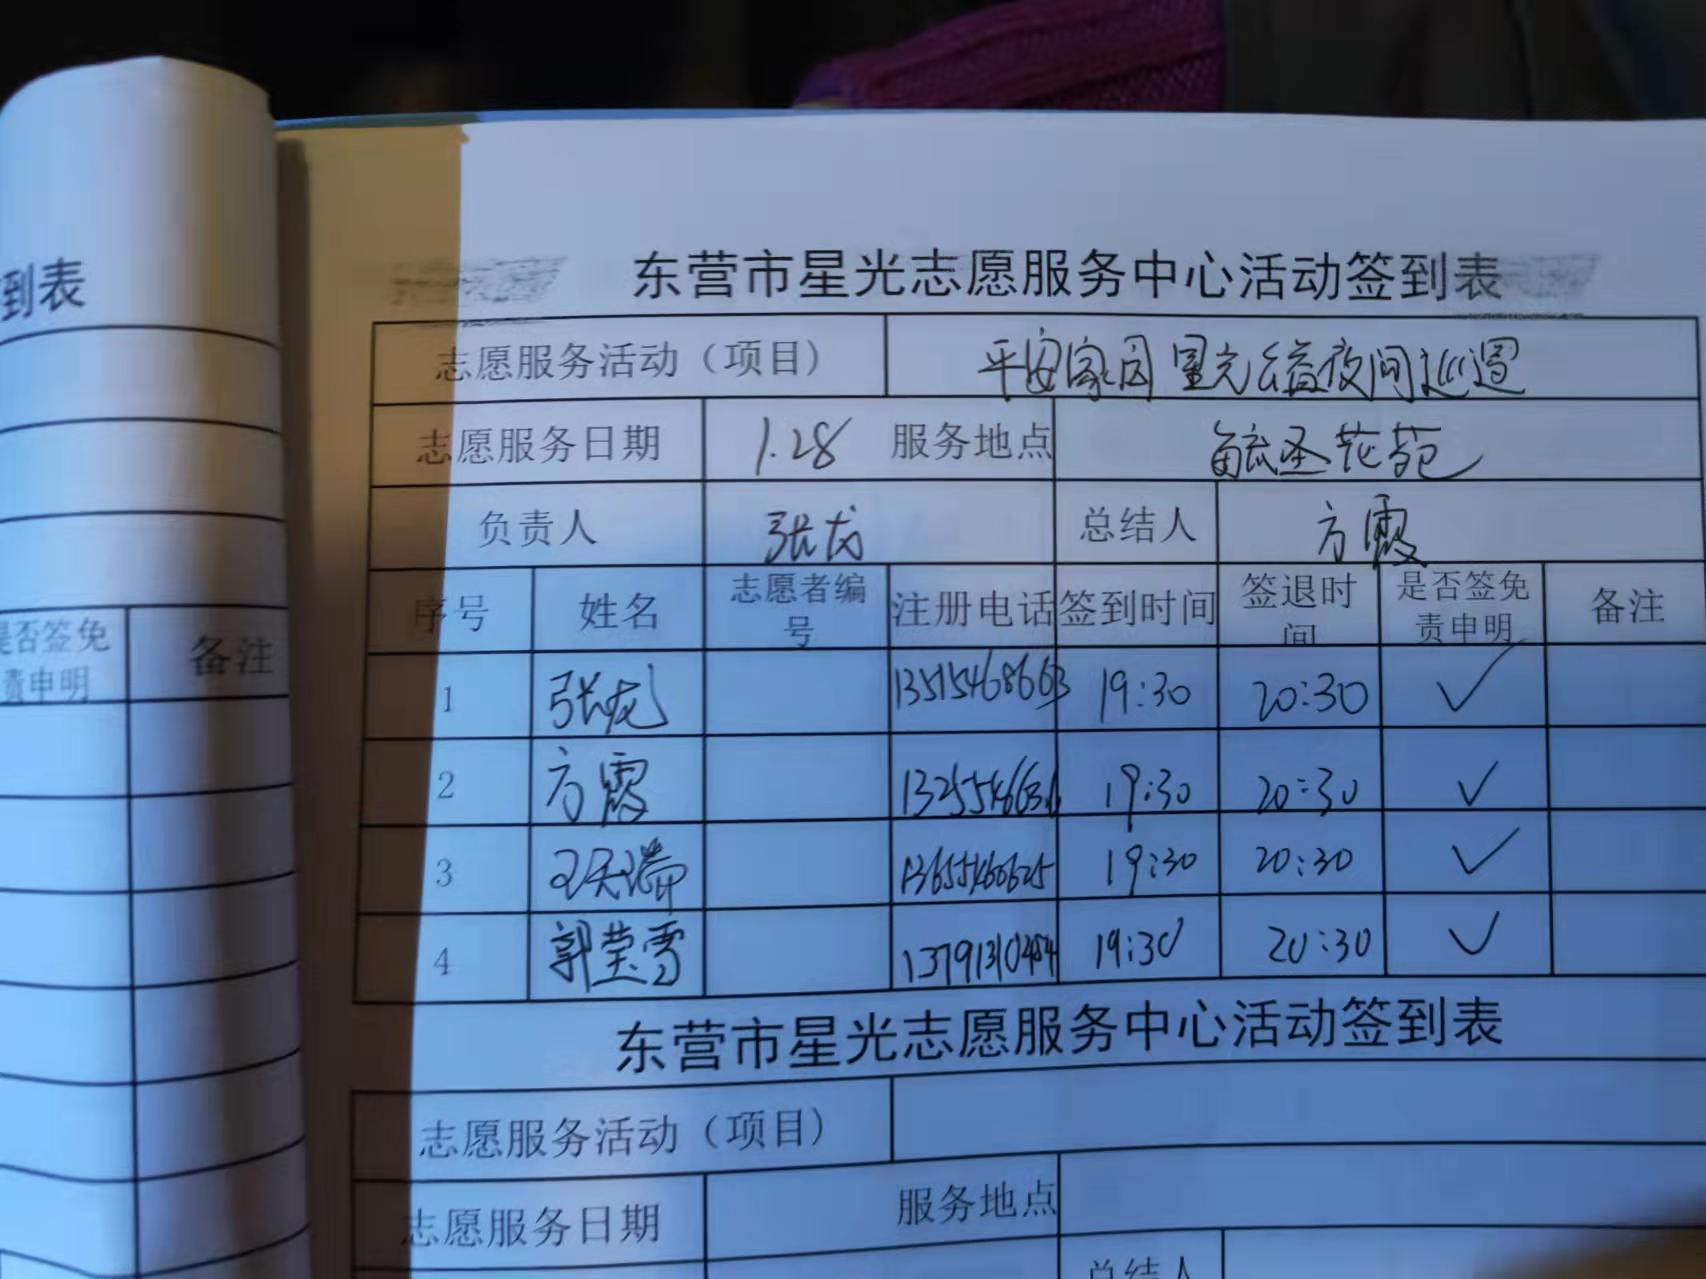 到表
是否签免
责申明
备注
东营市星光志愿服务中心活动签到表
志愿服务活动（项目） 平安家园星光公益夜间巡逻
志愿服务日期 1.28 服务地点 毓圣花苑
负责人 张龙 总结人 方霞
序号 姓名 志愿者编号 注册电话 签到时间 签退时间 是否签免责申明 备注
1 张龙 13515468663 19:30 20:30 ✓
2 方霞 19:30 20:30 ✓
3 王天瑞 13655460625 19:30 20:30 ✓
4 郭莹雪 13791310484 19:30 20:30 ✓
东营市星光志愿服务中心活动签到表
志愿服务活动（项目）
志愿服务日期 服务地点
总结人